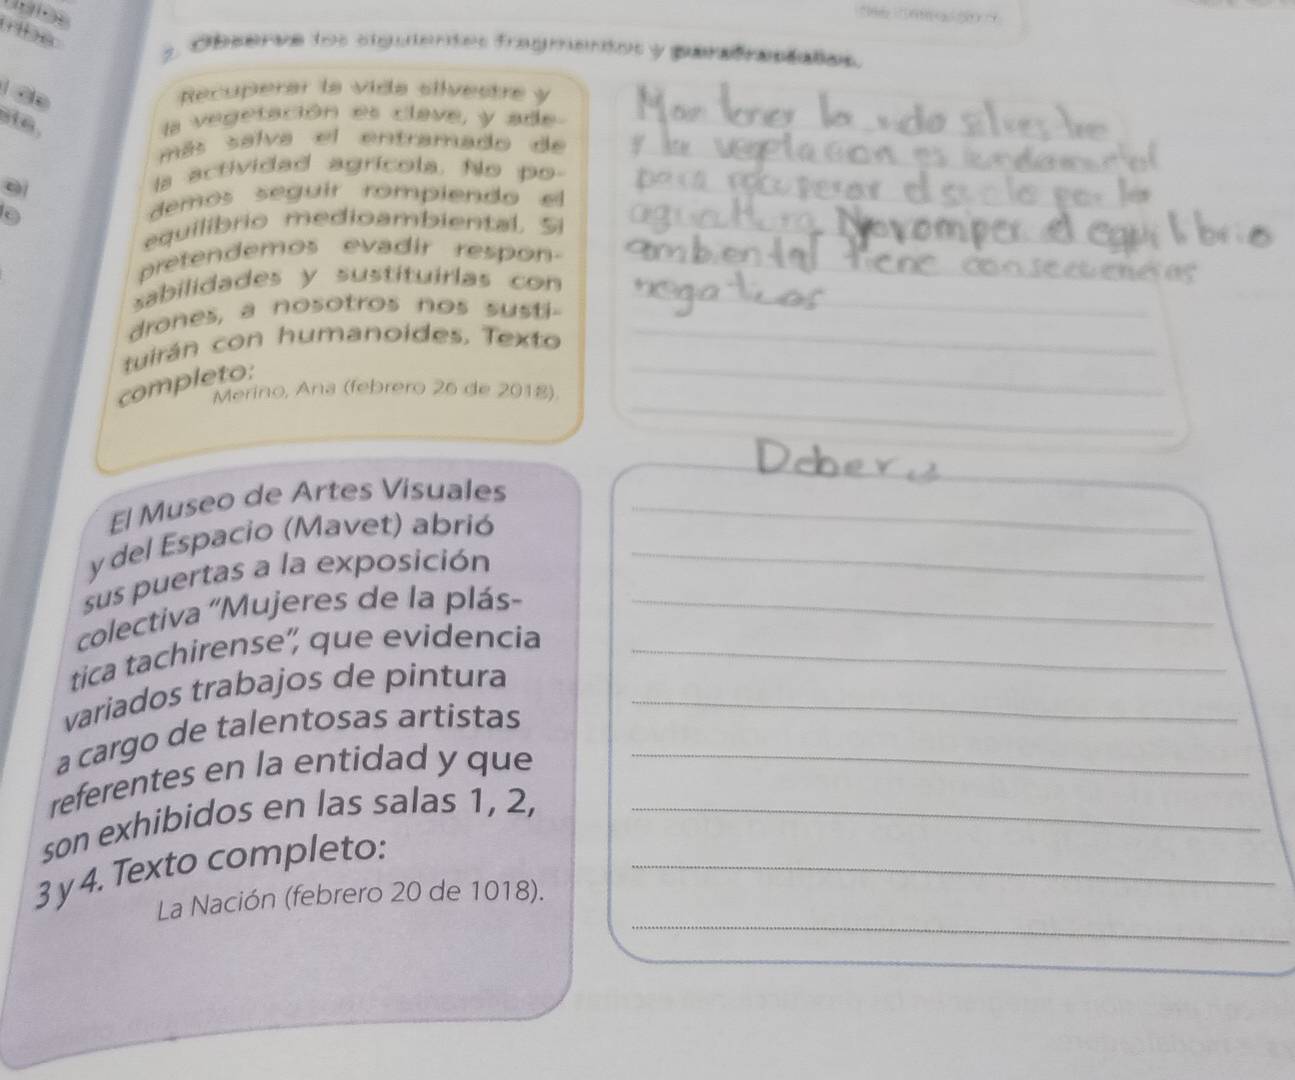 2. Observe los siguientes fragmentos y parafraséalos.
Recuperar la vida silvestre y
la vegetación es clave, y ade-
más salva el entramado de
la actividad agrícola. No po-
demos seguir rompiendo el
equilibrio medioambiental. Si
pretendemos evadir respon-
sabilidades y sustituirlas con
drones, a nosotros nos susti-
tuirán con humanoides. Texto
completo:
Merino, Ana (febrero 26 de 2018).
Man tener la vida silvestre
y la vegetacion es
para recuperar el suelo por la
agricultura No romper el equilibrio
ambiental tiene consecuencias
negativas
Deber
El Museo de Artes Visuales
y del Espacio (Mavet) abrió
sus puertas a la exposición
colectiva “Mujeres de la plás-
tica tachirense”, que evidencia
variados trabajos de pintura
a cargo de talentosas artistas
referentes en la entidad y que
son exhibidos en las salas 1, 2,
3 y 4. Texto completo:
La Nación (febrero 20 de 1018).